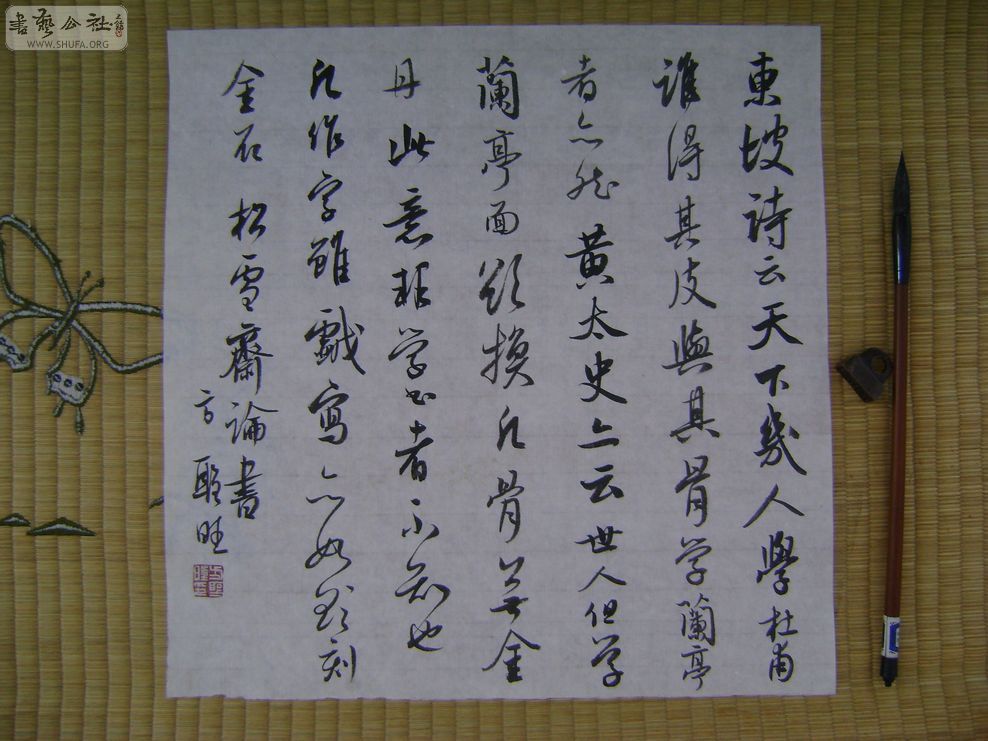 東坡诗云天下幾人學杜甫
誰得其皮與其骨学蘭亭
者亦然黄太史亦云世人但学
蘭亭面欲换凡骨無金
丹此意非学书者不知也
凡作字雖戲寫亦如欲刻
金石松雪齋論書
方聪旺
書藝公社
WWW.SHUFA.ORG